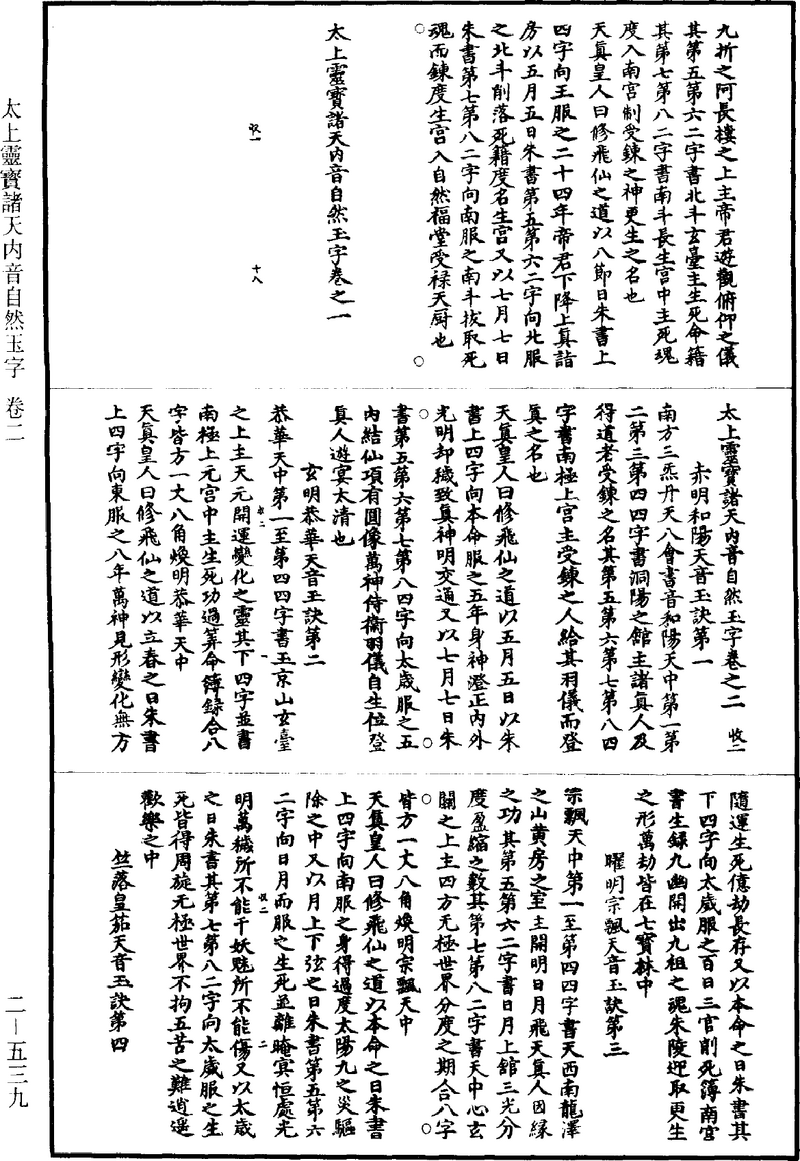 太上靈寶諸天內音自然玉字 卷二
二－五三九
九折之阿長樓之上主帝君遊觀俯仰之儀
其第五第六二字書北斗玄臺主生死命籍
其第七第八二字書南斗長生宮中主死魂
度入南宮制受鍊之神更生之名也
天真皇人曰修飛仙之道以八節日朱書上
四字向王服之二十四年帝君下降上真詣
房以五月五日朱書第五第六二字向北服
之北斗削落死籍度名生宮又以七月七日
朱書第七第八二字向南服之南斗拔取死
魂而鍊度生宮入自然福堂受祿天厨也
太上靈寶諸天內音自然玉字卷之一
收一 十八
太上靈寶諸天內音自然玉字卷之二 收二
赤明和陽天音玉訣第一
南方三炁丹天八會書音和陽天中第一第
二第三第四四字書洞陽之館主諸真人及
得道者受鍊之名其第五第六第七第八四
字書南極上宮主受鍊之人給其羽儀而登
真之名也
天真皇人曰修飛仙之道以五月五日以朱
書上四字向本命服之五年身神澄正內外
光明却穢致真神明交通又以七月七日朱
書第五第六第七第八四字向太歲服之五
內結仙項有圓像萬神侍衛羽儀自生位登
真人遊宴太清也
玄明恭華天音玉訣第二
恭華天中第一至第四四字書玉京山玄臺
之上主天元開運變化之靈其下四字並書
南極上元宮中主生死功過筭命簿録合八
字皆方一丈八角煥明恭華天中
天真皇人曰修飛仙之道以立春之日朱書
上四字向東服之八年萬神見形變化無方
隨運生死億劫長存又以本命之日朱書其
下四字向太歲服之百日三官削死簿南宮
書生録九幽開出九祖之魂朱陵迎取更生
之形萬劫皆在七寶林中
曜明宗飄天音玉訣第三
宗飄天中第一至第四四字書天西南龍澤
之山黃房之室主開明日月飛天真人因緣
之功其第五第六二字書日月上館三光分
度盈縮之數其第七第八二字書天中心玄
關之上主四方无極世界分度之期合八字
皆方一丈八角煥明宗飄天中
天真皇人曰修飛仙之道以本命之日朱書
上四字向南服之身得過度太陽九之災驅
除之中又以月上下弦之日朱書第五第六
二字向日月而服之生死並離晻冥恒處光
明萬穢所不能干妖魅所不能傷又以太歲
之日朱書其第七第八二字向太歲服之生
死皆得周旋无極世界不拘五苦之難逍遥
歡樂之中
竺落皇笳天音玉訣第四